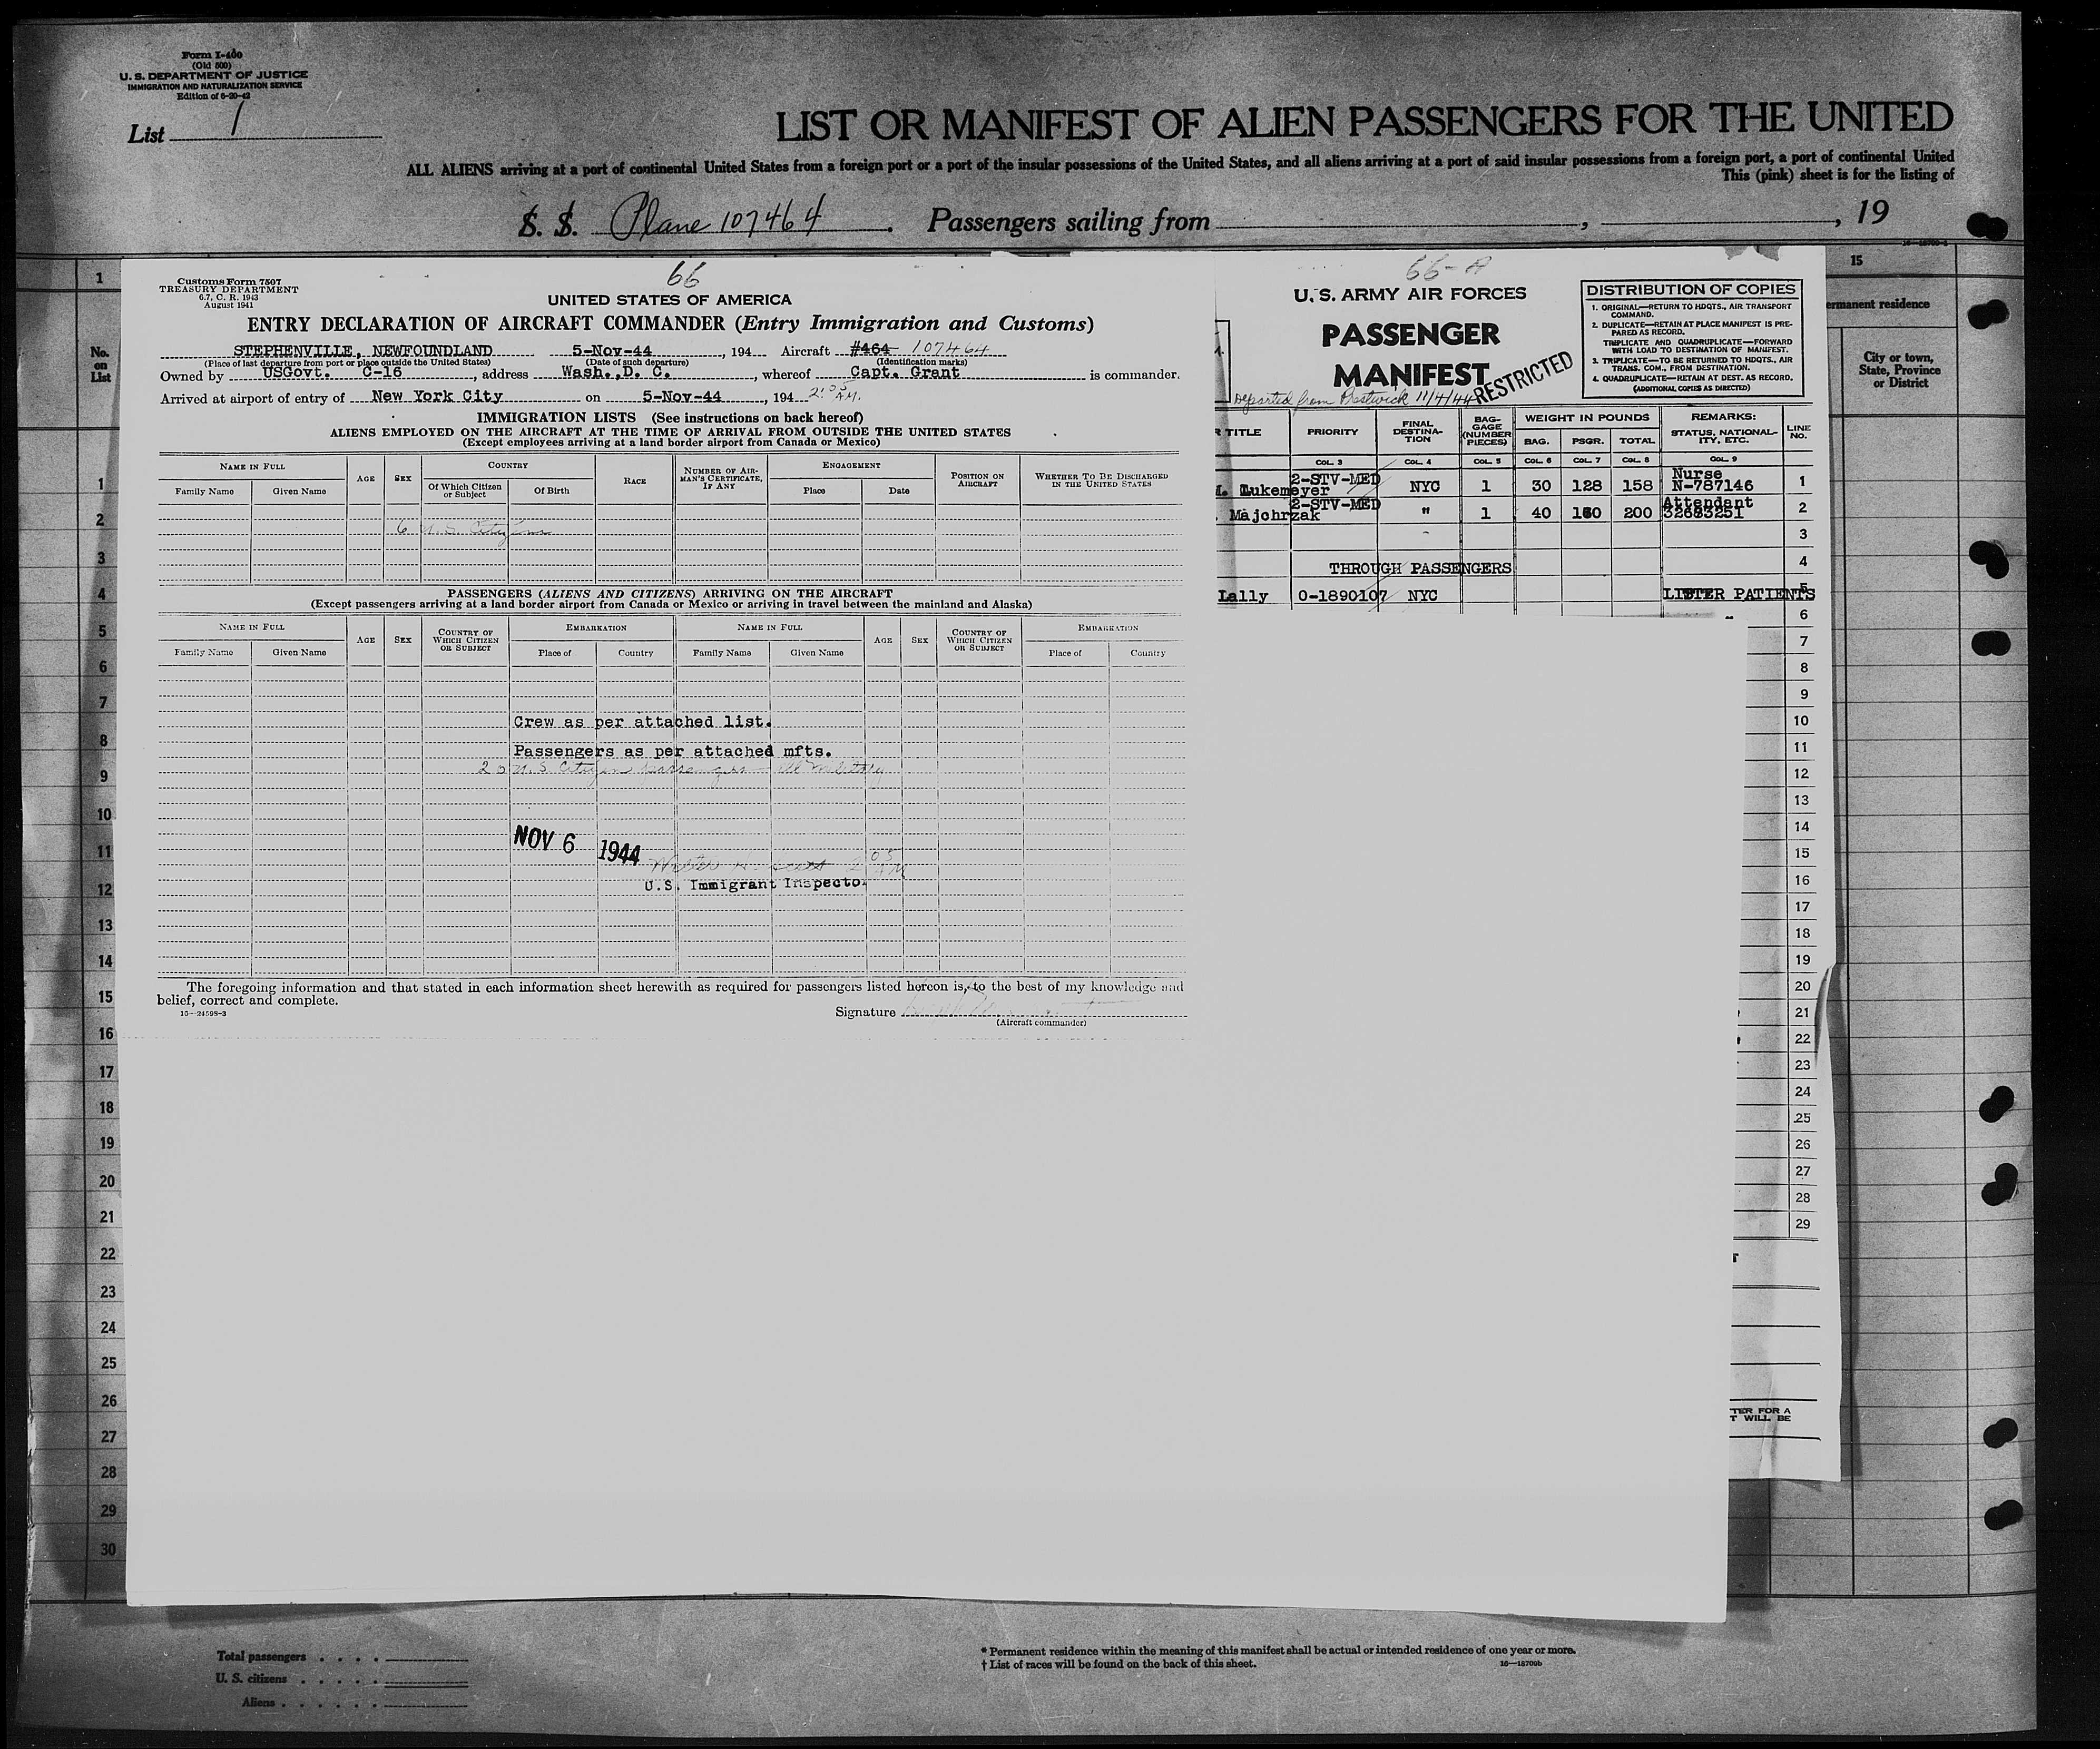 Form I-400
(Old 500)
U. S. DEPARTMENT OF JUSTICE
IMMIGRATION AND NATURALIZATION SERVICE
Edition of 6-20-42
List 1
LIST OR MANIFEST OF ALIEN PASSENGERS FOR THE UNITED
ALL ALIENS arriving at a port of continental United States from a foreign port or a port of the insular possessions of the United States, and all aliens arriving at a port of said insular possessions from a foreign port, a port of continental United
This (pink) sheet is for the listing of
S. S. Plane 107464. Passengers sailing from , , 19
15
ermanent residence
City or town, State, Province or District
No. on List
1
2
3
4
5
6
7
8
9
10
11
12
13
14
15
16
17
18
19
20
21
22
23
24
25
26
27
28
29
30
66
Customs Form 7507
TREASURY DEPARTMENT
6.7, C. R. 1943
August 1941
UNITED STATES OF AMERICA
ENTRY DECLARATION OF AIRCRAFT COMMANDER (Entry Immigration and Customs)
STEPHENVILLE, NEWFOUNDLAND 5-Nov-44, 194 Aircraft #464 107464
(Place of last departure from port or place outside the United States) (Date of such departure) (Identification marks)
Owned by USGovt. C-16, address Wash.,D. C., whereof Capt. Grant is commander.
Arrived at airport of entry of New York City on 5-Nov-44, 194 2:05 AM.
IMMIGRATION LISTS (See instructions on back hereof)
ALIENS EMPLOYED ON THE AIRCRAFT AT THE TIME OF ARRIVAL FROM OUTSIDE THE UNITED STATES
(Except employees arriving at a land border airport from Canada or Mexico)
NAME IN FULL AGE SEX COUNTRY RACE NUMBER OF AIRMAN'S CERTIFICATE, IF ANY ENGAGEMENT POSITION ON AIRCRAFT WHETHER TO BE DISCHARGED IN THE UNITED STATES
Family Name Given Name Of Which Citizen or Subject Of Birth Place Date
6 U.S. Citizens
PASSENGERS (ALIENS AND CITIZENS) ARRIVING ON THE AIRCRAFT
(Except passengers arriving at a land border airport from Canada or Mexico or arriving in travel between the mainland and Alaska)
NAME IN FULL AGE SEX COUNTRY OF WHICH CITIZEN OR SUBJECT EMBARKATION NAME IN FULL AGE SEX COUNTRY OF WHICH CITIZEN OR SUBJECT EMBARKATION
Family Name Given Name Place of Country Family Name Given Name Place of Country
Crew as per attached list.
Passengers as per attached mfts.
20 U.S. Citizen passengers all Military
NOV 6 1944
2 05 AM
U.S. Immigrant Inspector
The foregoing information and that stated in each information sheet herewith as required for passengers listed hereon is, to the best of my knowledge and
belief, correct and complete.
16-24598-3
Signature
(Aircraft commander)
66-A
U. S. ARMY AIR FORCES
PASSENGER
MANIFEST
RESTRICTED
Departed from Prestwick 11/4/44
DISTRIBUTION OF COPIES
1. ORIGINAL—RETURN TO HDQTS., AIR TRANSPORT COMMAND.
2. DUPLICATE—RETAIN AT PLACE MANIFEST IS PREPARED AS RECORD.
TRIPLICATE AND QUADRUPLICATE—FORWARD WITH LOAD TO DESTINATION OF MANIFEST.
3. TRIPLICATE—TO BE RETURNED TO HDQTS., AIR TRANS. COM., FROM DESTINATION.
4. QUADRUPLICATE—RETAIN AT DEST. AS RECORD.
(ADDITIONAL COPIES AS DIRECTED)
R TITLE PRIORITY FINAL DESTINATION BAGGAGE (NUMBER PIECES) WEIGHT IN POUNDS REMARKS: STATUS, NATIONALITY, ETC. LINE NO.
BAG. PSGR. TOTAL
COL. 3 COL. 4 COL. 5 COL. 6 COL. 7 COL. 8 COL. 9
M. Lukemeyer 2-STV-MED NYC 1 30 128 158 Nurse N-787146 1
. Majchrzak 2-STV-MED " 1 40 160 200 Attendant 32683251 2
3
THROUGH PASSENGERS 4
Lally 0-1890107 NYC LITTER PATIENTS 5
6
7
8
9
10
11
12
13
14
15
16
17
18
19
20
21
22
23
24
25
26
27
28
29
TER FOR A
T WILL BE
Total passengers
U. S. citizens
Aliens
* Permanent residence within the meaning of this manifest shall be actual or intended residence of one year or more.
† List of races will be found on the back of this sheet.
16—18709b